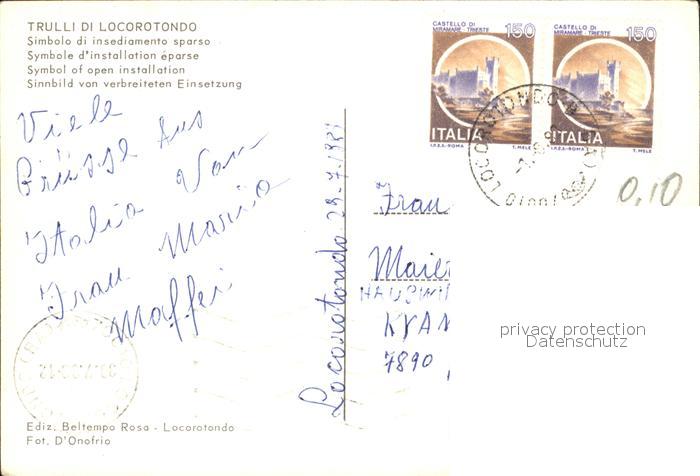 TRULLI DI LOCOROTONDO
Simbolo di insediamento sparso
Symbole d'installation éparse
Symbol of open installation
Sinnbild von verbreiteten Einsetzung
CASTELLO DI
MIRAMARE - TRIESTE
150
ITALIA
I.P.Z.S. - ROMA
T. MELE
CASTELLO DI
MIRAMARE - TRIESTE
150
ITALIA
I.P.Z.S. - ROMA
T. MELE
LOCOROTONDO
0,10
Viele
Grüsse Aus
Italia Von
Frau Maria
Maffei
Locorotondo 29-7-1981
Frau
Maier
7890
privacy protection
Datenschutz
Ediz. Beltempo Rosa - Locorotondo
Fot. D'Onofrio